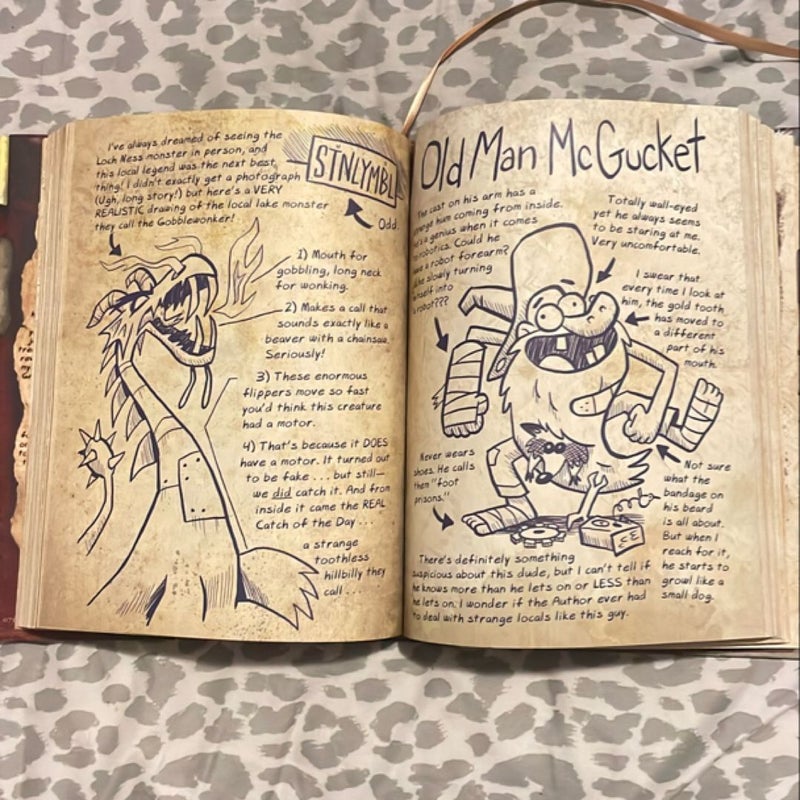 I've always dreamed of seeing the
Loch Ness monster in person, and
this local legend was the next best
thing! I didn't exactly get a photograph
(Ugh, long story!) but here's a VERY
REALISTIC drawing of the local lake monster
they call the Gobblewonker!
STNLYMBL
Odd.
1) Mouth for
gobbling, long neck
for wonking.
2) Makes a call that
sounds exactly like a
beaver with a chainsaw.
Seriously!
3) These enormous
flippers move so fast
you'd think this creature
had a motor.
4) That's because it DOES
have a motor. It turned out
to be fake ... but still—
we did catch it. And from
inside it came the REAL
Catch of the Day ...
a strange
toothless
hillbilly they
call ...
Old Man McGucket
The cast on his arm has a
hum coming from inside.
a genius when it comes
robotics. Could he
a robot forearm?
he slowly turning
into
robot???
Totally wall-eyed
yet he always seems
to be staring at me.
Very uncomfortable.
I swear that
every time I look at
him, the gold tooth
has moved to
a different
part of his
mouth.
Never wears
shoes. He calls
them "foot
prisons."
Not sure
what the
bandage on
his beard
is all about.
But when I
reach for it,
he starts to
growl like a
small dog.
There's definitely something
suspicious about this dude, but I can't tell if
he knows more than he lets on or LESS than
he lets on. I wonder if the Author ever had
to deal with strange locals like this guy.